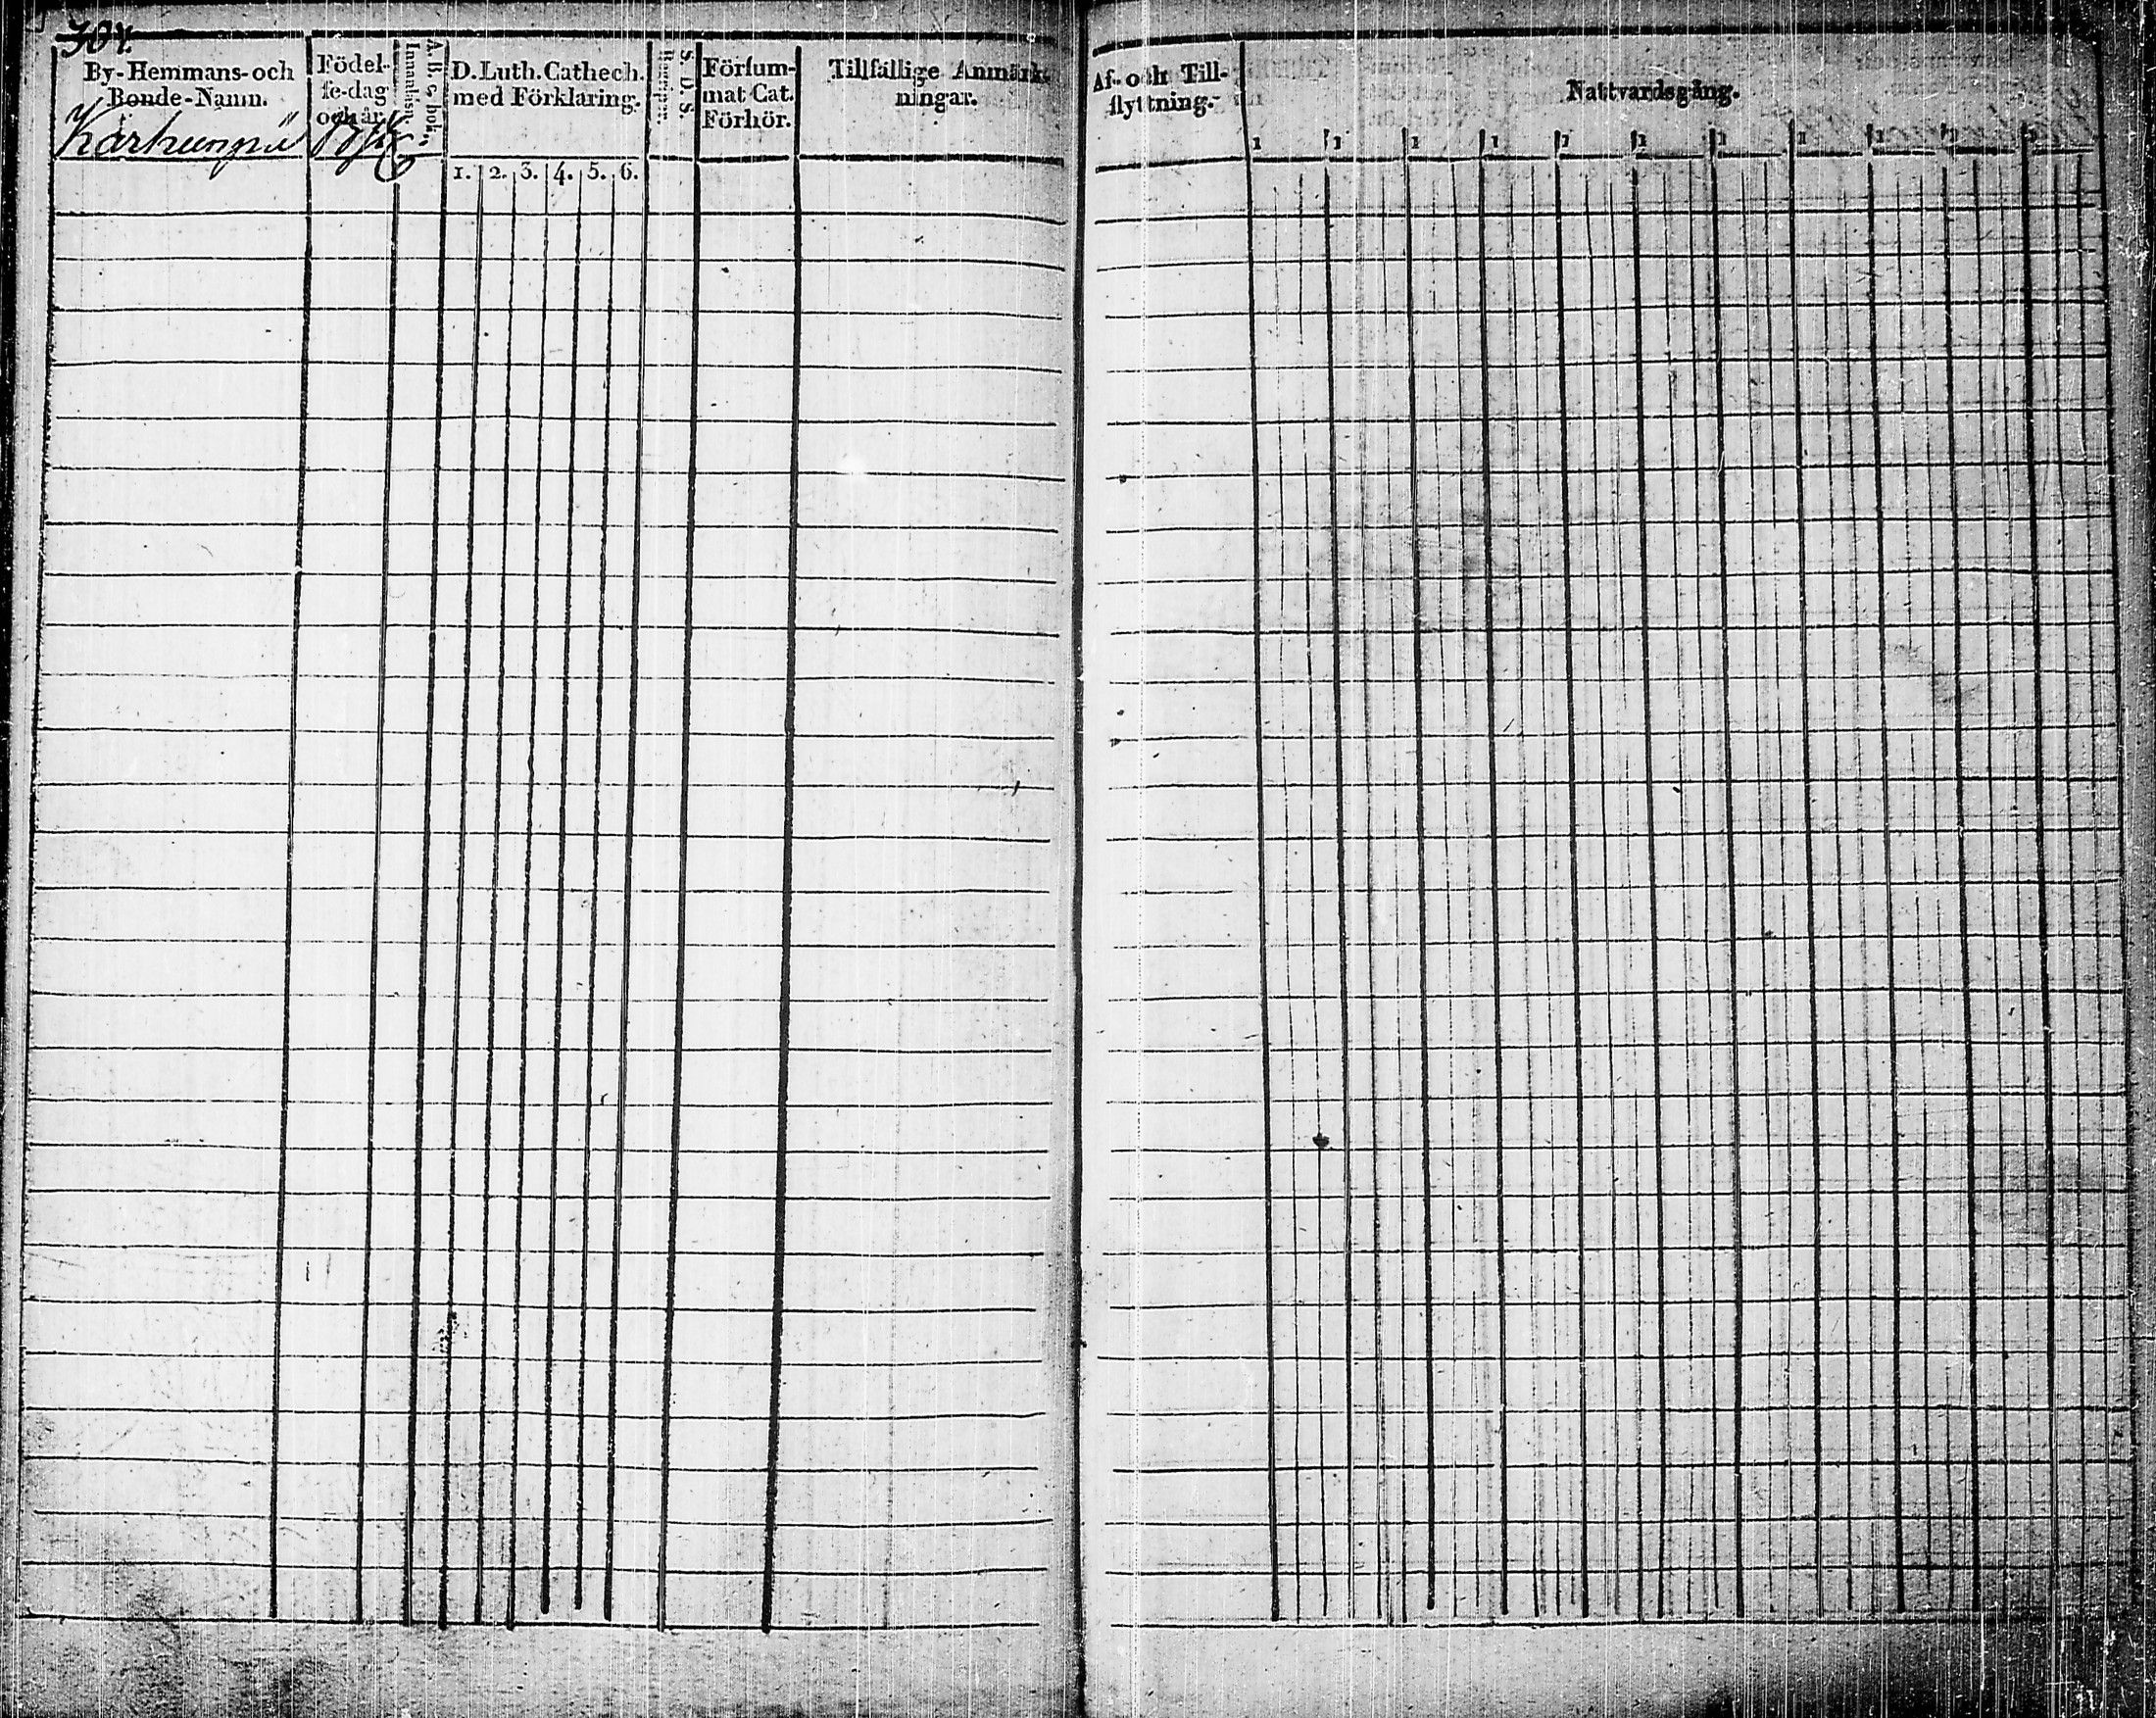 304.
By-Hemmans-och
Bonde-Namn.
Födel-
se-dag
och år.
A. B. c bok.
Innanläsn.
D. Luth. Cathech.
med Förklaring.
1. 2. 3. 4. 5. 6.
S. D. S.
Försum-
mat Cat.
Förhör.
Tillfällige Anmärk-
ningar.
Af- och Till-
flyttning.
Nattvardsgång.
1 1 1 1 1 1 1 1 1 1 1